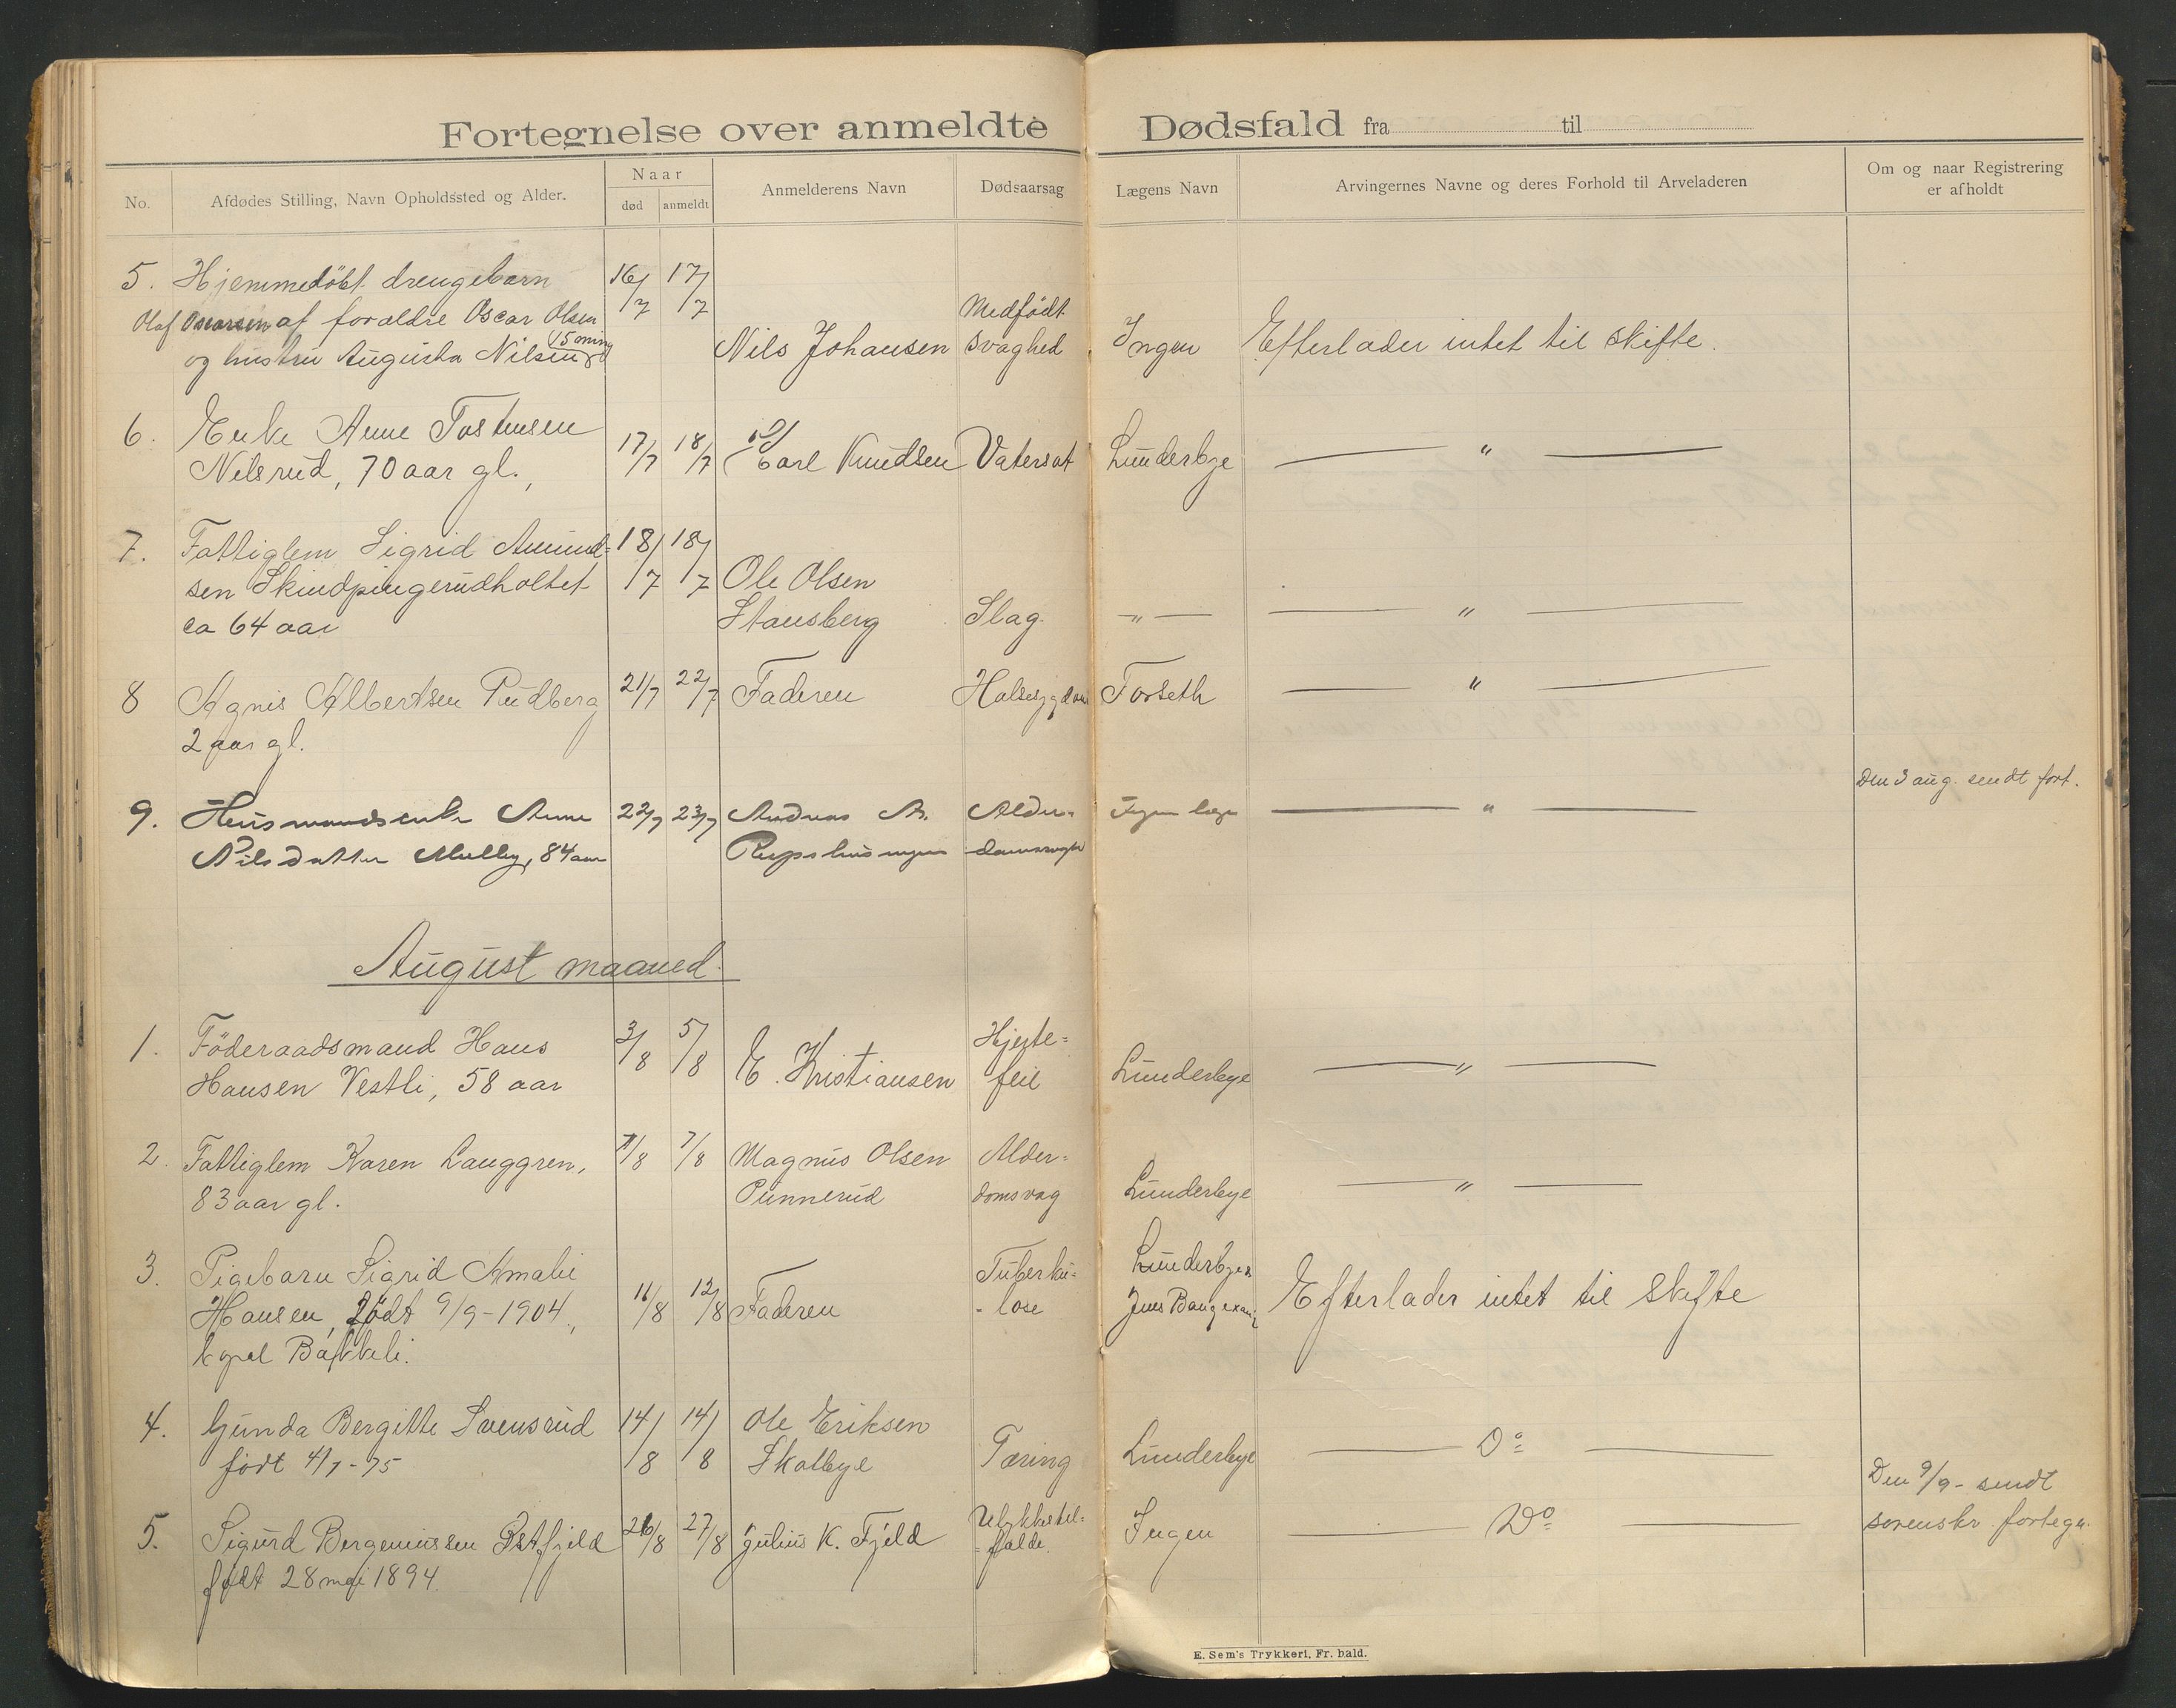 Fortegnelse over anmeldte Dødsfald fra til
No.
Afdødes Stilling, Navn Opholdssted og Alder.
Naar
død
anmeldt
Anmelderens Navn
Dødsaarsag
Lægens Navn
Arvingernes Navne og deres Forhold til Arveladeren
Om og naar Registrering
er afholdt
5. Hjemmedöbt drengebarn 16/7 17/7
Olaf Oscarsen af forældre Oscar Olsen
15 min
og hustru Augusta Nilsen
Nils Johansen
Medfödt
svaghed
Ingen
Efterlader intet til skifte.
6. Enke Anne Tostensen
Nilsrud, 70 aar gl.,
17/7 18/7
Carl Knudsen
Vatersot
Lunderbye
— " —
7. Fattiglem Sigrid Amund-
sen Skindpungerudholtet
ca 64 aar
18/7 18/7
Ole Olsen
Stansberg
Slag
— " —
— " —
8 Agnes Albertsen Rudberg
2 aar gl.
21/7 22/7
Faderen
Halsesygdom
Forseth
— " —
9. Husmandsenke Anne
Nilsdatter Mellby, 84 aar
22/7 23/7
Andreas A.
Alder-
Ingen læge
— " —
Den 3 aug. sendt fort.
August maaned.
1. Föderaadsmand Hans
Hansen Vestli, 58 aar
3/8 5/8
E. Kristiansen
Hjerte=
feil
Lunderbye
— " —
2. Fattiglem Karen Langgren,
83 aar gl.
7/8 7/8
Magnus Olsen
Runnerud
Alder=
domsvag
Lunderbye
— " —
3. Pigebarn Sigrid Amalie
Hansen, födt 9/9-1904,
kapel Bakkeli.
11/8 12/8
Faderen
Tuberku=
-lose
Lunderbye &
Jens
Efterlader intet til Skifte
4. Gunda Bergitte Svensrud
födt 4/7-75
14/8 14/8
Ole Eriksen
Skolbye
Tæring
Lunderbye
— Do —
5. Sigurd Bergerussen Østfjeld
født 28 mai 1894.
26/8 27/8
Julius K. Fjeld
Ulykkestil=
=fælde.
Ingen
— Do —
Den 9/9- sendt
sorenskr. fortegn.
E. Sem's Trykkeri, Fr. hald.